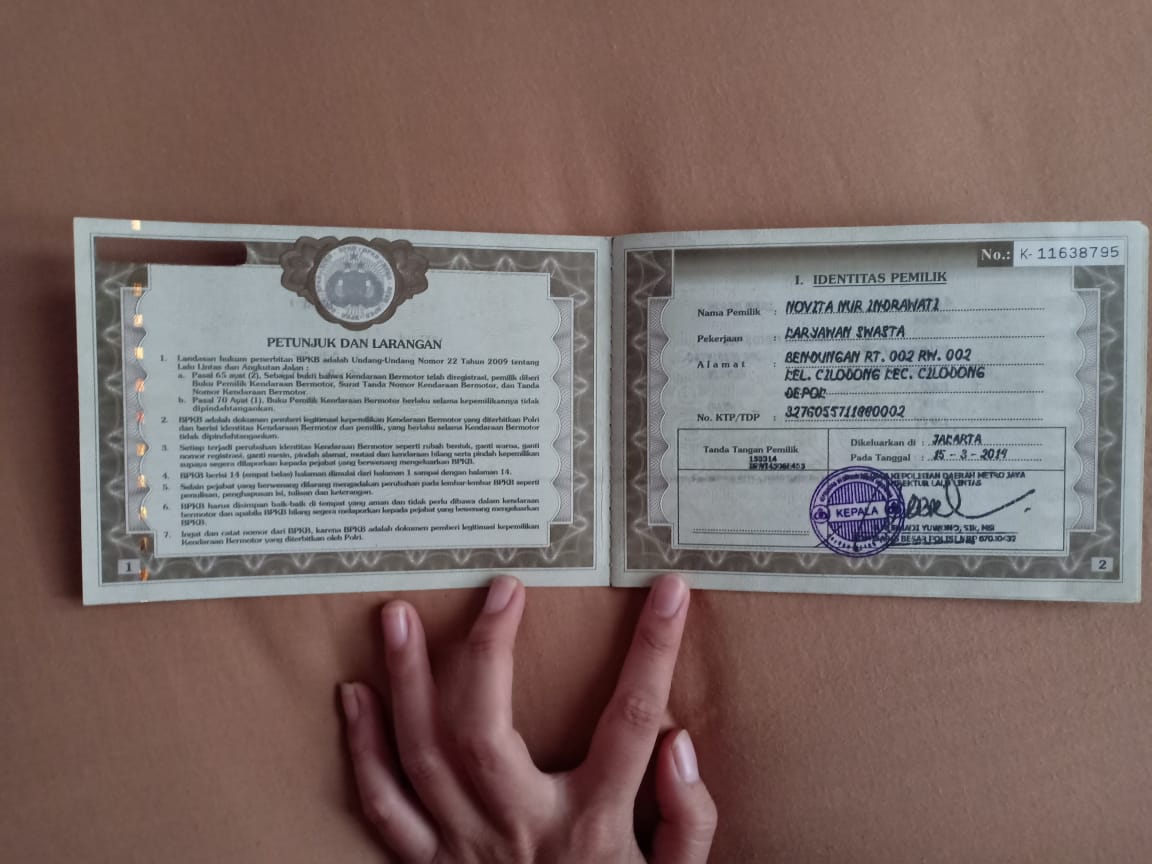 PETUNJUK DAN LARANGAN
1. Landasan hukum penerbitan BPKB adalah Undang-Undang Nomor 22 Tahun 2009 tentang
Lalu Lintas dan Angkutan Jalan :
a. Pasal 65 ayat (2), Sebagai bukti bahwa Kendaraan Bermotor telah diregistrasi, pemilik diberi
Buku Pemilik Kendaraan Bermotor, Surat Tanda Nomor Kendaraan Bermotor, dan Tanda
Nomor Kendaraan Bermotor.
b. Pasal 70 Ayat (1), Buku Pemilik Kendaraan Bermotor berlaku selama kepemilikannya tidak
dipindahtangankan.
2. BPKB adalah dokumen pemberi legitimasi kepemilikan Kendaraan Bermotor yang diterbitkan Polri
dan berisi identitas Kendaraan Bermotor dan pemilik, yang berlaku selama Kendaraan Bermotor
tidak dipindahtangankan.
3. Setiap terjadi perubahan identitas Kendaraan Bermotor seperti rubah bentuk, ganti warna, ganti
nomor registrasi, ganti mesin, pindah alamat, mutasi dan kendaraan hilang serta pindah kepemilikan
supaya segera dilaporkan kepada pejabat yang berwenang mengeluarkan BPKB.
4. BPKB berisi 14 (empat belas) halaman dimulai dari halaman 1 sampai dengan halaman 14.
5. Selain pejabat yang berwenang dilarang mengadakan perubahan pada lembar-lembar BPKB seperti
penulisan, penghapusan isi, tulisan dan keterangan.
6. BPKB harus disimpan baik-baik di tempat yang aman dan tidak perlu dibawa dalam kendaraan
bermotor dan apabila BPKB hilang segera melaporkan kepada pejabat yang berwenang mengeluarkan
BPKB.
7. Ingat dan catat nomor dari BPKB, karena BPKB adalah dokumen pemberi legitimasi kepemilikan
Kendaraan Bermotor yang diterbitkan oleh Polri.
1
No.: K- 11638795
I. IDENTITAS PEMILIK
Nama Pemilik : NOVITA NUR INDRAWATI
Pekerjaan : KARYAWAN SWASTA
Alamat : BENDUNGAN RT. 002 RW. 002
KEL. CILODONG KEC. CILODONG
DEPOK
No. KTP/TDP : 3276055711880002
Tanda Tangan Pemilik
150314
Dikeluarkan di : JAKARTA
Pada Tanggal : 15 - 3 - 2014
KEPOLISIAN DAERAH METRO JAYA
LALU LINTAS
KEPALA
YUWONO, SIK, MSi
BESAR POLISI NRP
2